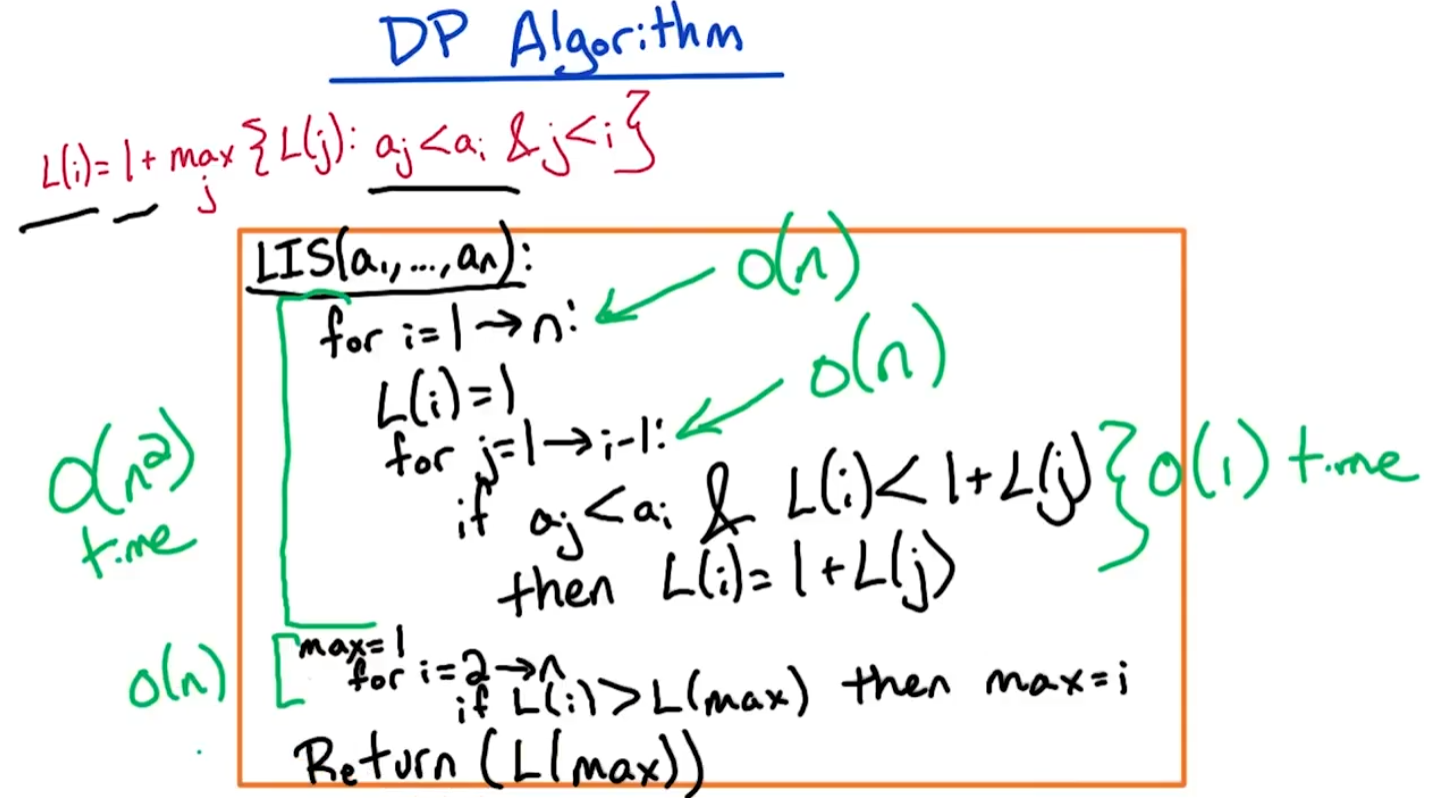 DP Algorithm
L(i)= 1 + max_j {L(j): a_j < a_i & j < i}
LIS(a_1, ..., a_n):
O(n)
for i=1→n:
O(n)
L(i)=1
for j=1→i-1:
if a_j < a_i & L(i) < 1+L(j) } O(1) time
O(n²)
time
then L(i)= 1+L(j)
max=1
O(n)
for i=2→n
if L(i)>L(max) then max=i
Return (L(max))